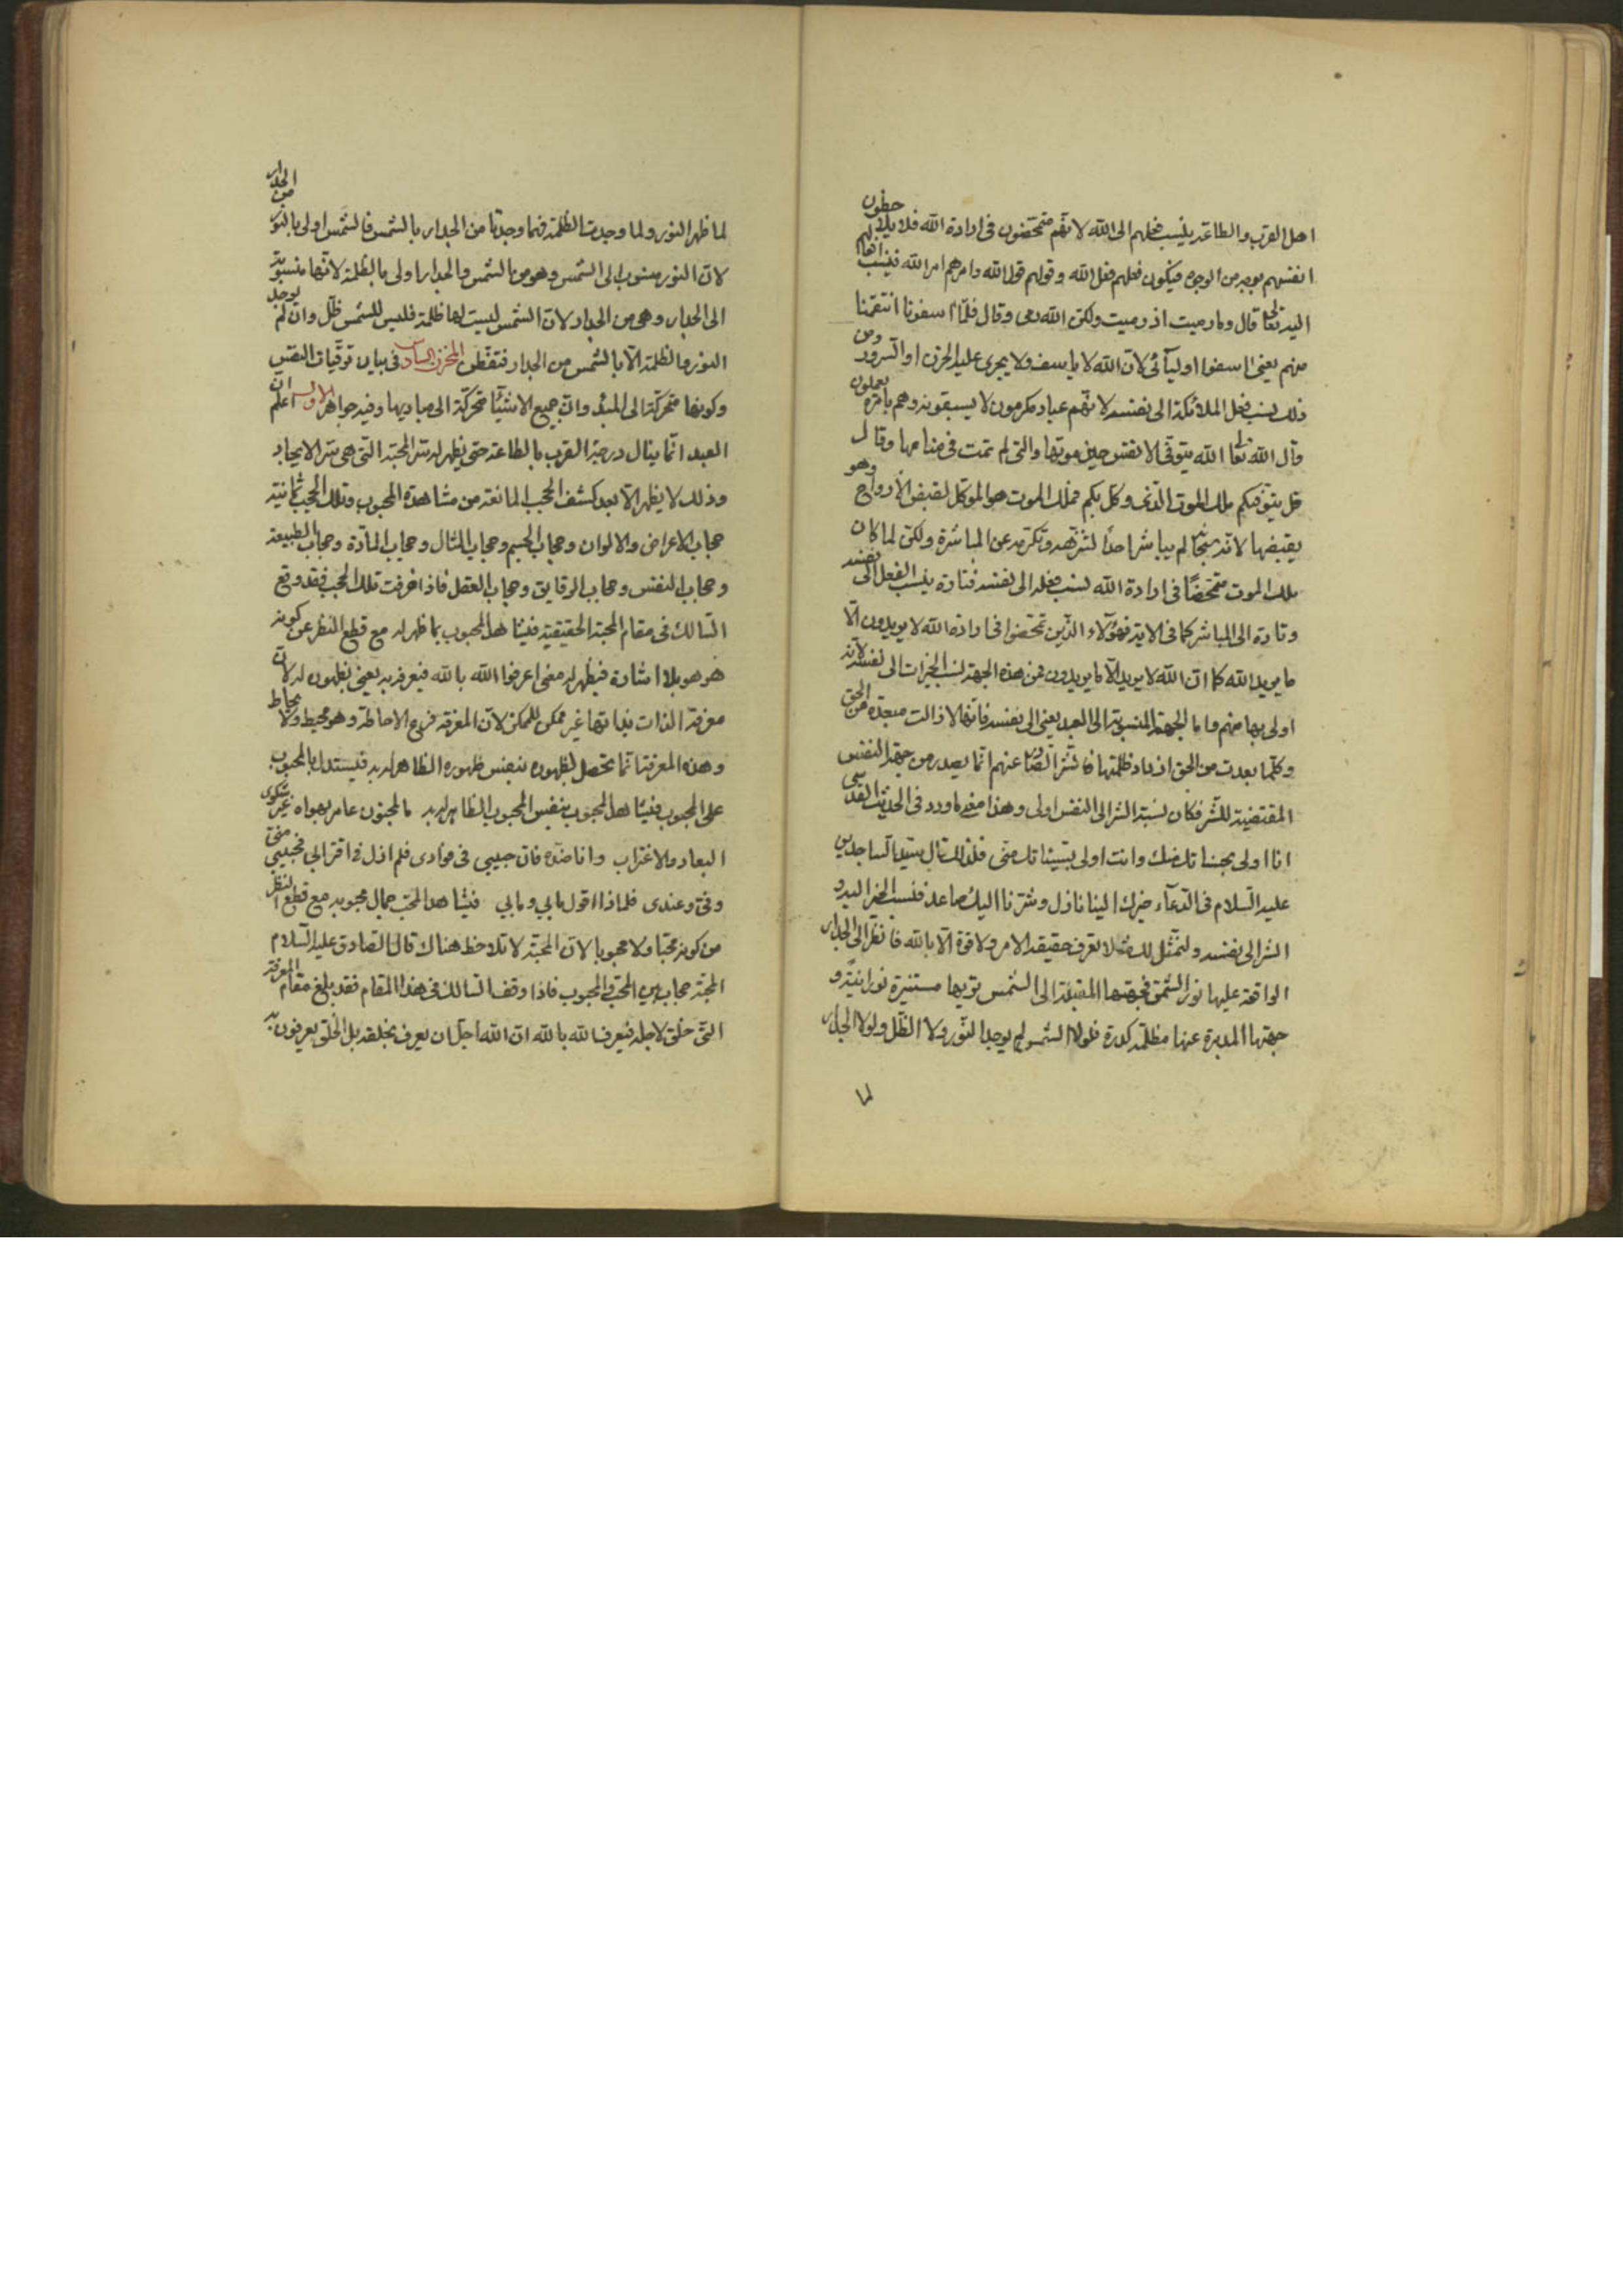 اهل القرب والطاعة ينسب فعلهم الى الله لانهم متمحضون في ارادة الله فلا يلاحظون
انفسهم بوجه من الوجوه فيكون فعلهم فعل الله وقولهم قول الله وامرهم امر الله فينسب افعالهم
اليه تعالى قال وما رميت اذ رميت ولكن الله رمى وقال فلما اسفونا انتقمنا
منهم يعني اسفوا اوليائي لان الله لا ياسف ولا يجري عليه الحزن او السرور ومن
ذلك نسب فعل الملائكة الى نفسه لانهم عباد مكرمون لا يسبقونه وهم بامره يعملون
قال الله تعالى الله يتوفى الانفس حين موتها والتي لم تمت في منامها وقال
قل يتوفيكم ملك الموت الذي وكل بكم فملك الموت هو الموكل لقبض الارواح وهو
يقبضها لانه سبحانه لم يباشر احدا لتنزهه وتكرمه عن المباشرة ولكن لما كان
ملك الموت متمحضا في ارادة الله نسب فعله الى نفسه فتارة ينسب الفعل الى نفسه
وتارة الى المباشر كما في الاية فهؤلاء الذين تمحضوا في ارادة الله لا يريدون الا
ما يريد الله كما ان الله لا يريد الا ما يريدون فمن هذه الجهة نسب الخيرات الى نفسه لانه
اولى بها منهم واما الجهة المنسوبة الى العبد يعني الى نفسه فانها لا زالت مبعدة من الحق
وكلما بعدت من الحق ازداد ظلمتها فالشر الصادر عنهم انما يصدر من جهة النفس
المقتضية للشر فكان نسبة الشر الى النفس اولى وهذا معنى ما ورد في الحديث القدسي
انا اولى بحسناتك منك وانت اولى بسيئاتك مني فلذلك قال سيد الساجدين
عليه السلام في الدعاء خيرك الينا نازل وشرنا اليك صاعد فنسب الخير اليه و
الشر الى نفسه ولنمثل لك مثلا تعرف حقيقة الامر ولا قوة الا بالله فانظر الى الجدار
الواقعة عليها نور الشمس فجهتها المقبلة الى الشمس تريها مستنيرة نورانية و
جهتها المدبرة عنها مظلمة كدرة فلولا الشمس لم يوجد النور ولا الظل ولولا الجدار
لما
لما ظهر النور ولما وجدت الظلمة فهما وجدتا من الجدار بالشمس فالشمس اولى بالنور من الجدار
لان النور منسوب الى الشمس وهو من الشمس والجدار اولى بالظلمة لانها منسوبة
الى الجدار وهي من الجدار لان الشمس ليست لها ظلمة فليس للشمس ظل وان لم يوجد
النور والظلمة الا بالشمس من الجدار فتفطن المخزن السادس في بيان ترقيات النفس
وكونها متحركة الى المبدء وان جميع الاشياء متحركة الى مباديها وفيه جواهر الاول اعلم ان
العبد انما ينال درجة القرب بالطاعة حتى يظهر له سر المحبة التي هي سر الايجاد
وذلك لا يظهر الا بعد كشف الحجب المانعة من مشاهدة المحبوب وتلك الحجب ثمانية
حجاب الاعراض والالوان وحجاب الجسم وحجاب المثال وحجاب المادة وحجاب الطبيعة
وحجاب النفس وحجاب الرقايق وحجاب العقل فاذا خرقت تلك الحجب فقد وقع
السالك في مقام المحبة الحقيقية فيشاهد المحبوب بما ظهر له مع قطع النظر عن كونه
هو هو بلا اشارة فيظهر له معنى اعرفوا الله بالله فيعرفه به يعني بظهوره له لان
معرفة الذات بذاتها غير ممكن للممكن لان المعرفة فرع الاحاطة وهو محيط ولا يحاط
وهذه المعرفة انما تحصل بظهوره بنفس ظهوره الظاهر له به فيستدل بالمحبوب
على المحبوب فيشاهد المحبوب بنفس المحبوب الظاهر له به والمجنون عامر بهواه غير شكوى
البعاد والاغتراب وانا ضده فان حبيبي في فؤادي فلم ازل في اقترابي فحبيبي مني
وفي وعندي فلماذا اقول مابي ومابي فيشاهد المحب جمال محبوبه مع قطع النظر
من كونه محبا ولا محبوبا لان المحبة لا تلاحظ هناك قال الصادق عليه السلام
المحبة حجاب بين المحب والمحبوب فاذا وقف السالك في هذا المقام فقد بلغ مقام المعرفة
التي خلق لاجله فيعرف الله بالله ان الله اجل ان يعرف بخلقه بل الخلق يعرفون به